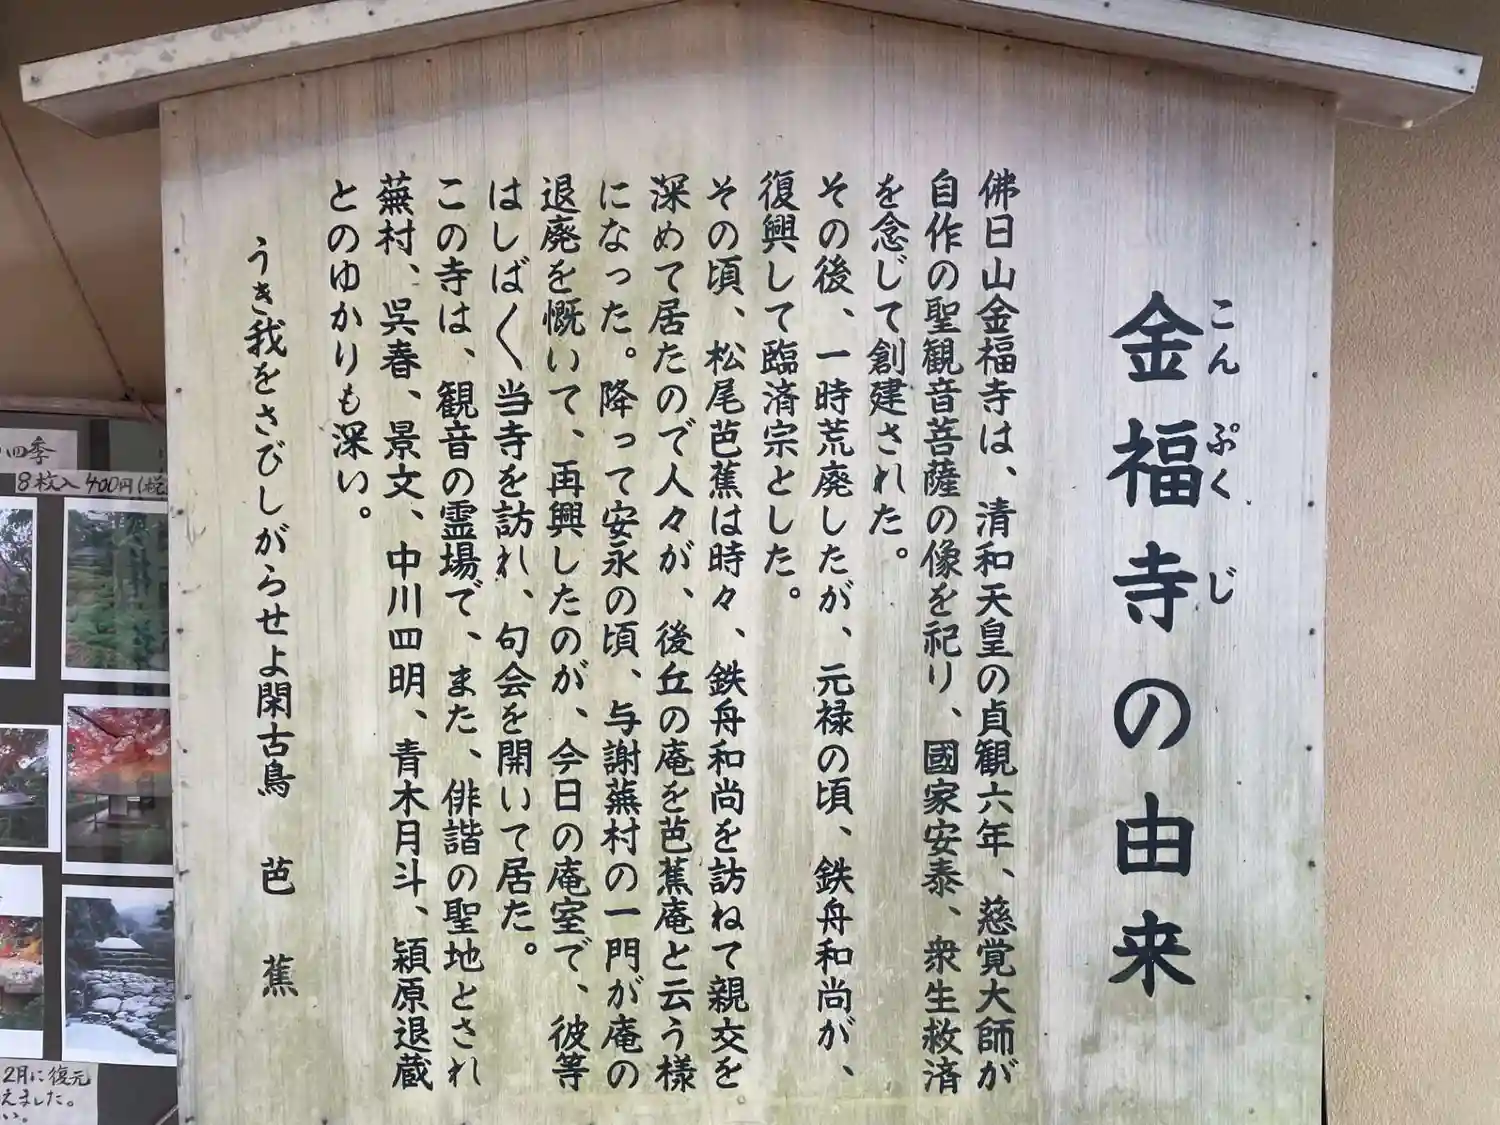 金福寺の由来
こんぷくじ
佛日山金福寺は、清和天皇の貞観六年、慈覚大師が
自作の聖観音菩薩の像を祀り、國家安泰、衆生救済
を念じて創建された。
その後、一時荒廃したが、元禄の頃、鉄舟和尚が、
復興して臨済宗とした。
その頃、松尾芭蕉は時々、鉄舟和尚を訪ねて親交を
深めて居たので人々が、後丘の庵を芭蕉庵と云う様
になった。降って安永の頃、与謝蕪村の一門が庵の
退廃を慨いて、再興したのが、今日の庵室で、彼等
はしば〱当寺を訪れ、句会を開いて居た。
この寺は、観音の霊場で、また、俳諧の聖地とされ
蕪村、呉春、景文、中川四明、青木月斗、穎原退蔵
とのゆかりも深い。
うき我をさびしがらせよ閑古鳥 芭 蕉
四季
8枚入 400円(税
2月に復元
えました。
い。